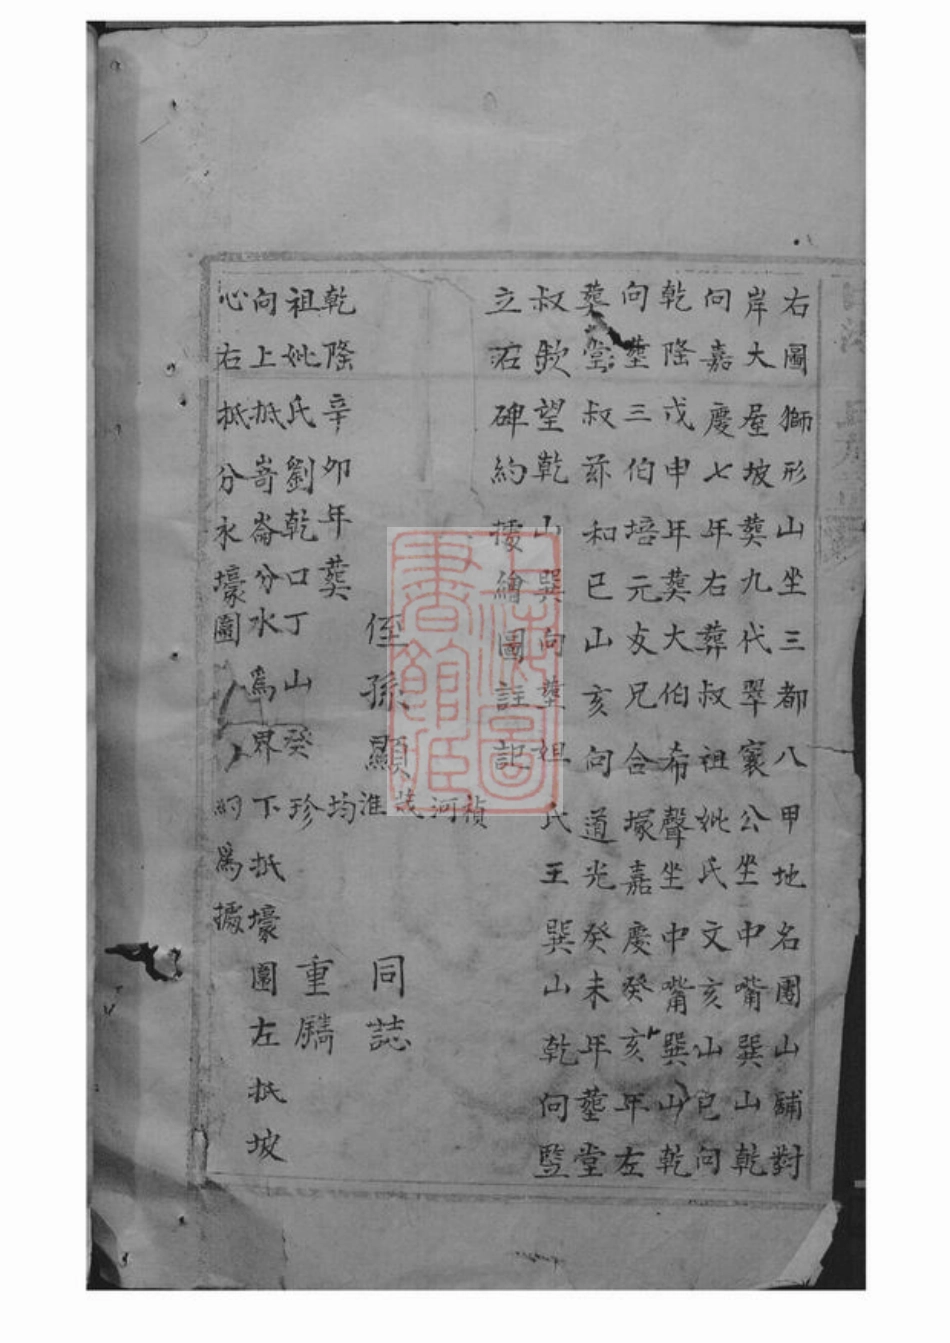 右圖獅形山坐三都八甲地名團山舖對
岸大屋坡葬九代翠寰公坐中嘴巽山乾
向嘉慶七年右葬叔祖妣氏文亥山已向
乾隆戊申年葬大伯希聲坐中嘴巽山乾
向塟三伯培元友兄合塚嘉慶癸亥年左
葬堂叔蔀和已山亥向道光癸未年塟堂
叔欽望乾山巽向塟姐氏王巽山乾向監
立石碑約據繪圖註記
禎
河
茂
侄孫顯淮同誌
均
珍重鐫
乾隆辛卯年葬
祖妣氏劉乾口丁山癸
向上抵嵜崙分水為界下抵壕圍左抵坡
心右抵分水壕圍約為據